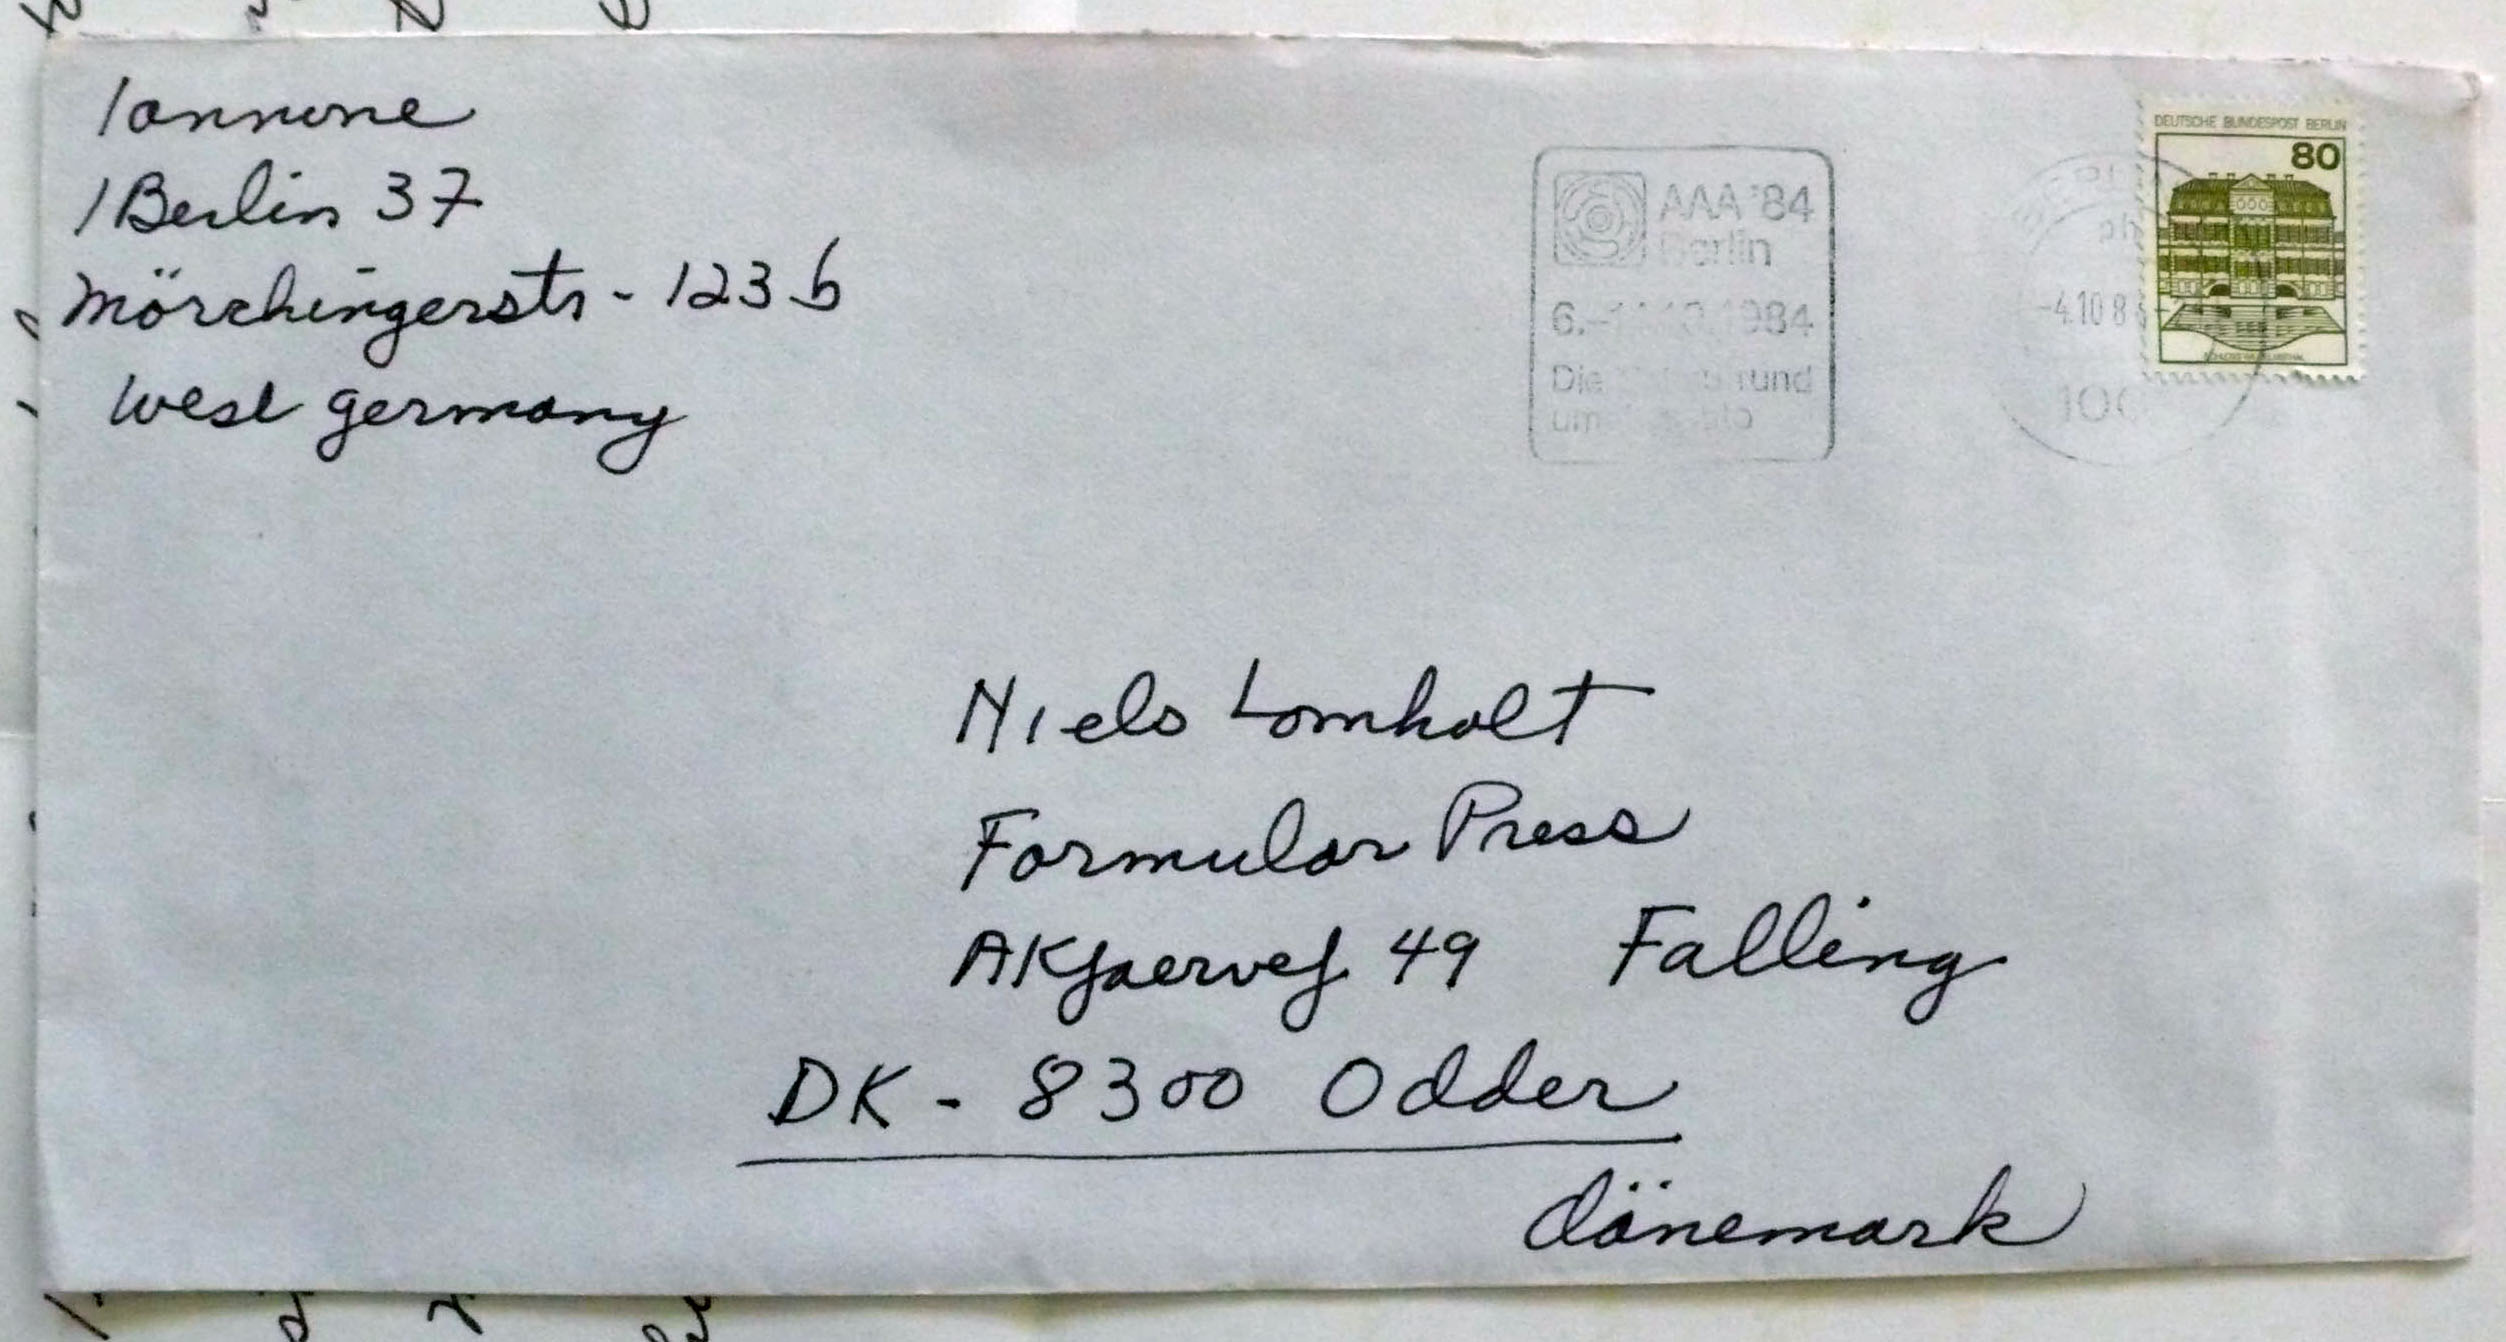 Iannone
1 Berlin 37
Mörchingerstr - 123 b
West Germany
AAA '84
Berlin
1984
Die rund
um
DEUTSCHE BUNDESPOST BERLIN
80
-4.10.8
Niels Lomholt
Formular Press
AKjaervej 49 Falling
DK - 8300 Odder
Dänemark